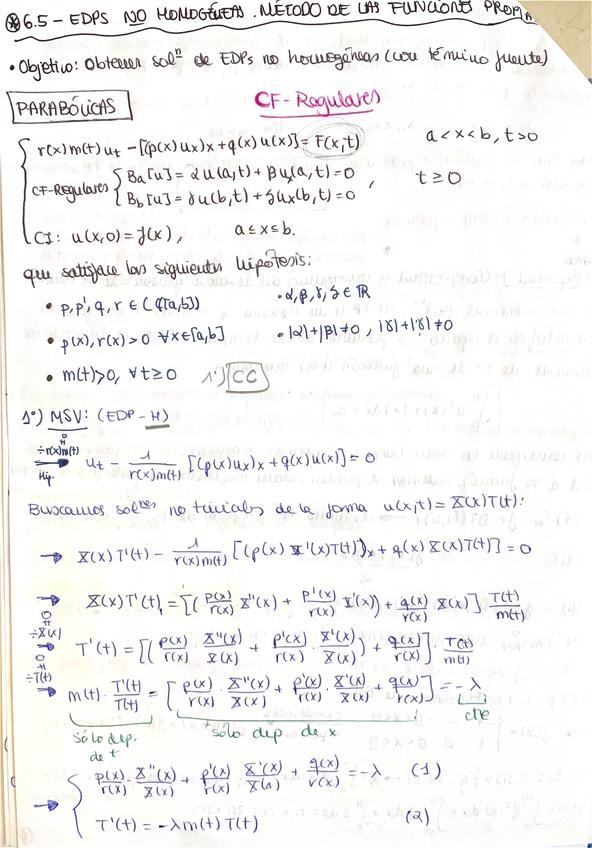 ⊛ 6.5 – EDPs NO HOMOGÉNEAS. MÉTODO DE LAS FUNCIONES PROPIA
• Objetivo: Obtener solⁿ de EDPs no homogéneas (con término fuente)
PARABÓLICAS
CF-Regulares
r(x)m(t)ut - [(p(x)ux)x + q(x)u(x)] = F(x,t) a<x<b, t>0
CF-Regulares { Ba[u] = αu(a,t) + βux(a,t) = 0
Bb[u] = γu(b,t) + ζux(b,t) = 0 , t≥0
CI: u(x,0) = f(x), a≤x≤b.
que satisface las siguientes hipótesis:
• p, p', q, r ∈ C([a,b]) • α, β, γ, ζ ∈ ℝ
• p(x), r(x) > 0 ∀x∈[a,b] • |α|+|β|≠0, |γ|+|γ|≠0
• m(t)>0, ∀t≥0 1º) CC
1º) MSV: (EDP-H)
÷r(x)m(t) ≠ 0 Hip. → ut - 1/(r(x)m(t)) [(p(x)ux)x + q(x)u(x)] = 0
Buscamos solnes no triviales de la forma u(x,t) = X(x)T(t):
→ X(x)T'(t) - 1/(r(x)m(t)) [(p(x)X'(x)T(t))x + q(x)X(x)T(t)] = 0
→ X(x)T'(t) = [(p(x)/r(x) X''(x) + p'(x)/r(x) X'(x)) + q(x)/r(x) X(x)] T(t)/m(t)
÷X(x) ≠ 0 → T'(t) = [(p(x)/r(x) · X''(x)/X(x) + p'(x)/r(x) · X'(x)/X(x)) + q(x)/r(x)] · T(t)/m(t)
÷T(t) ≠ 0 → m(t) · T'(t)/T(t) = [p(x)/r(x) · X''(x)/X(x) + p'(x)/r(x) · X'(x)/X(x) + q(x)/r(x)] = -λ
cte
sólo dep. de t sólo dep. de x
→ { p(x)/r(x) · X''(x)/X(x) + p'(x)/r(x) · X'(x)/X(x) + q(x)/r(x) = -λ (1)
T'(t) = -λ m(t) T(t) (2)